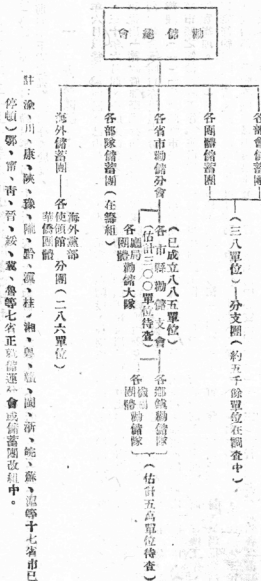 勸儲總會
各部會儲蓄團
各團體儲蓄團
(三八單位)—分支團(約五千餘單位在調查中)
各省市勸儲分會
(已成立八八五單位)
各市縣勸儲支會
(估計三〇〇單位待查)
各團體勸儲大隊
各鄉鎮勸儲隊
各機關
團體勸儲隊
(估計五萬單位待查)
各部隊儲蓄團(在籌組)
海外儲蓄團
海外黨部
各使領館 分團(二八六單位)
華僑團體
註:渝、川、康、陝、豫、隴、黔、滇、桂、湘、粵、贛、閩、浙、皖、蘇、等十七省市已
停頓)鄂、甯、青、晉、綏、冀、魯等七省正就儲運會或儲蓄團改組中。